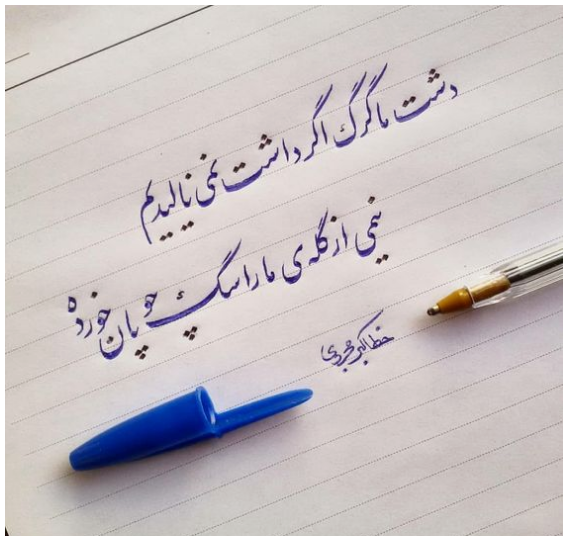 دشت ما گرگ اگر داشت نمی‌نالیدیم
نیمی از گله‌ی ما را سگ چوپان خورده
خط اکبر